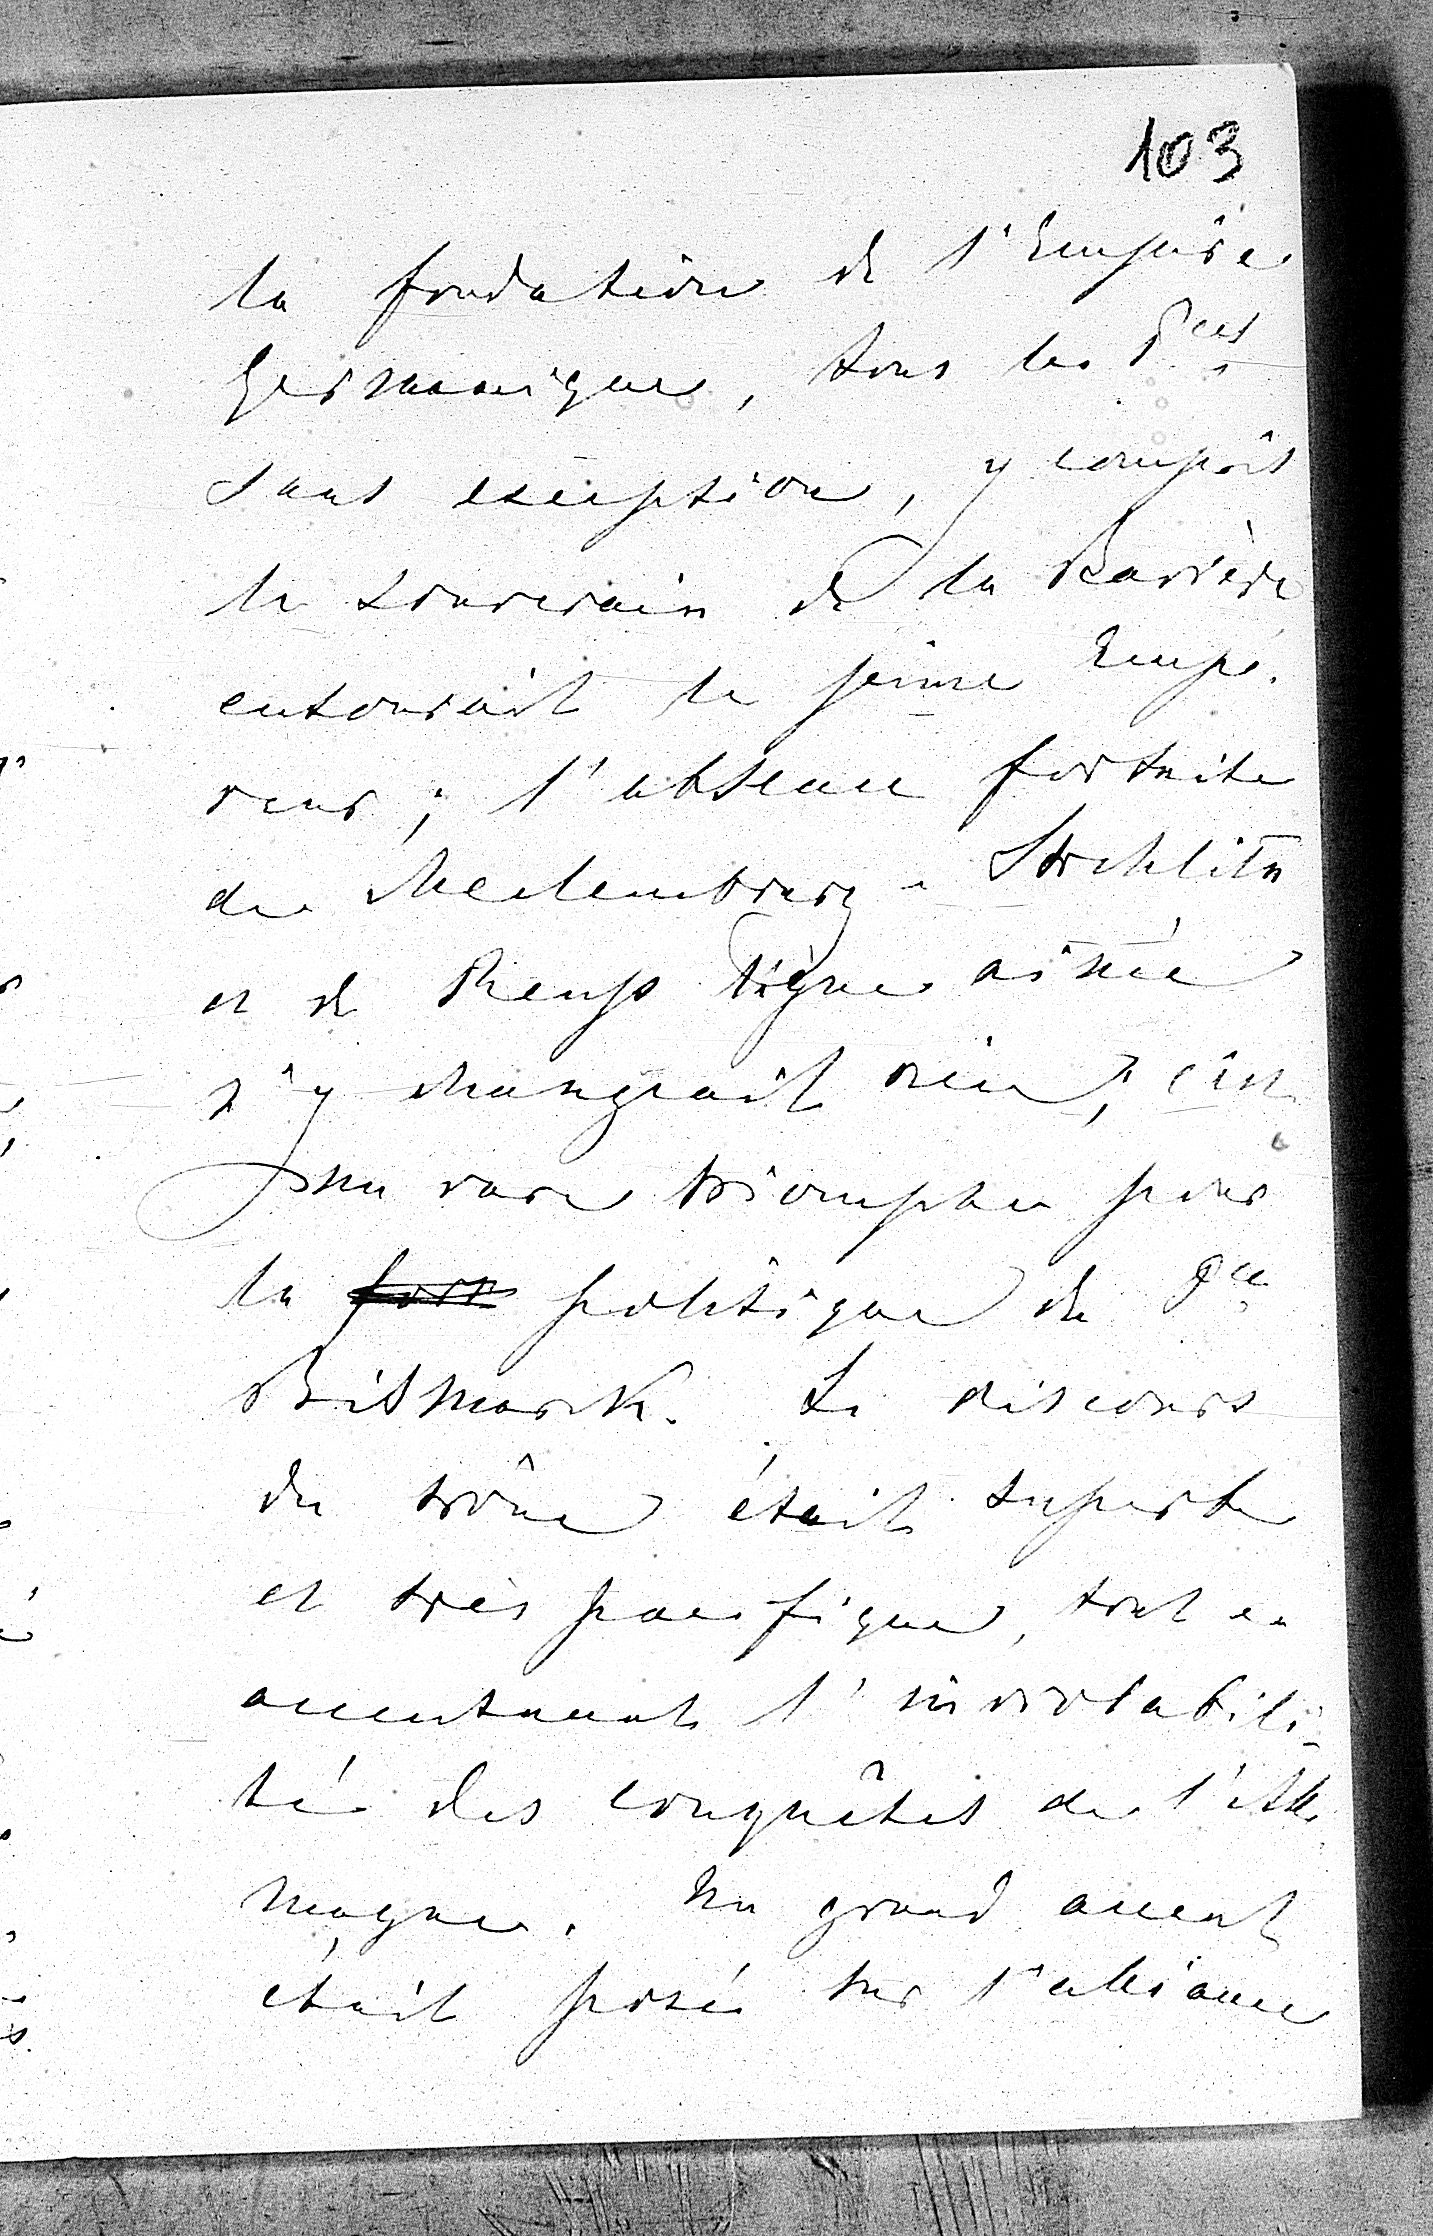 103
la fondation de l'Empire
Germanique, tous les Pces
sans exception, y compris
le souverain de la Bavière
entourait le jeune Empe-
reur; l'absence fortuite
de Meclembourg-Strehlitz
et de Reuss ligne aînée
n'y changeait rien; c'est
un rare triomphe pour
la politique du Pce
Bismarck. Le discours
du trône était superbe
et très pacifique, tout en
accentuant l'inviolabili-
té des conquêtes de l'Alle-
magne. Un grand accent
était posé sur l'alliance